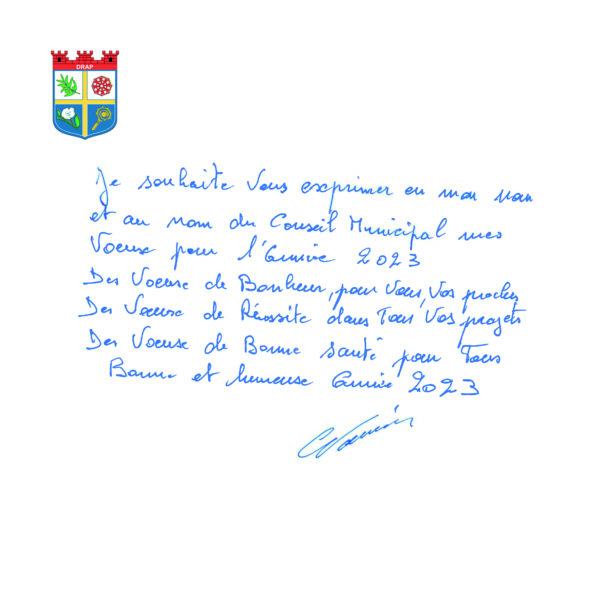 DRAP
Je souhaite Vous exprimer en mon nom
et au nom du Conseil Municipal mes
Voeux pour l'Année 2023
Des Voeux de Bonheur, pour Vous, Vos proches
Des Voeux de Réussite dans Tous Vos projets
Des Voeux de Bonne santé pour Tous
Bonne et heureuse Année 2023